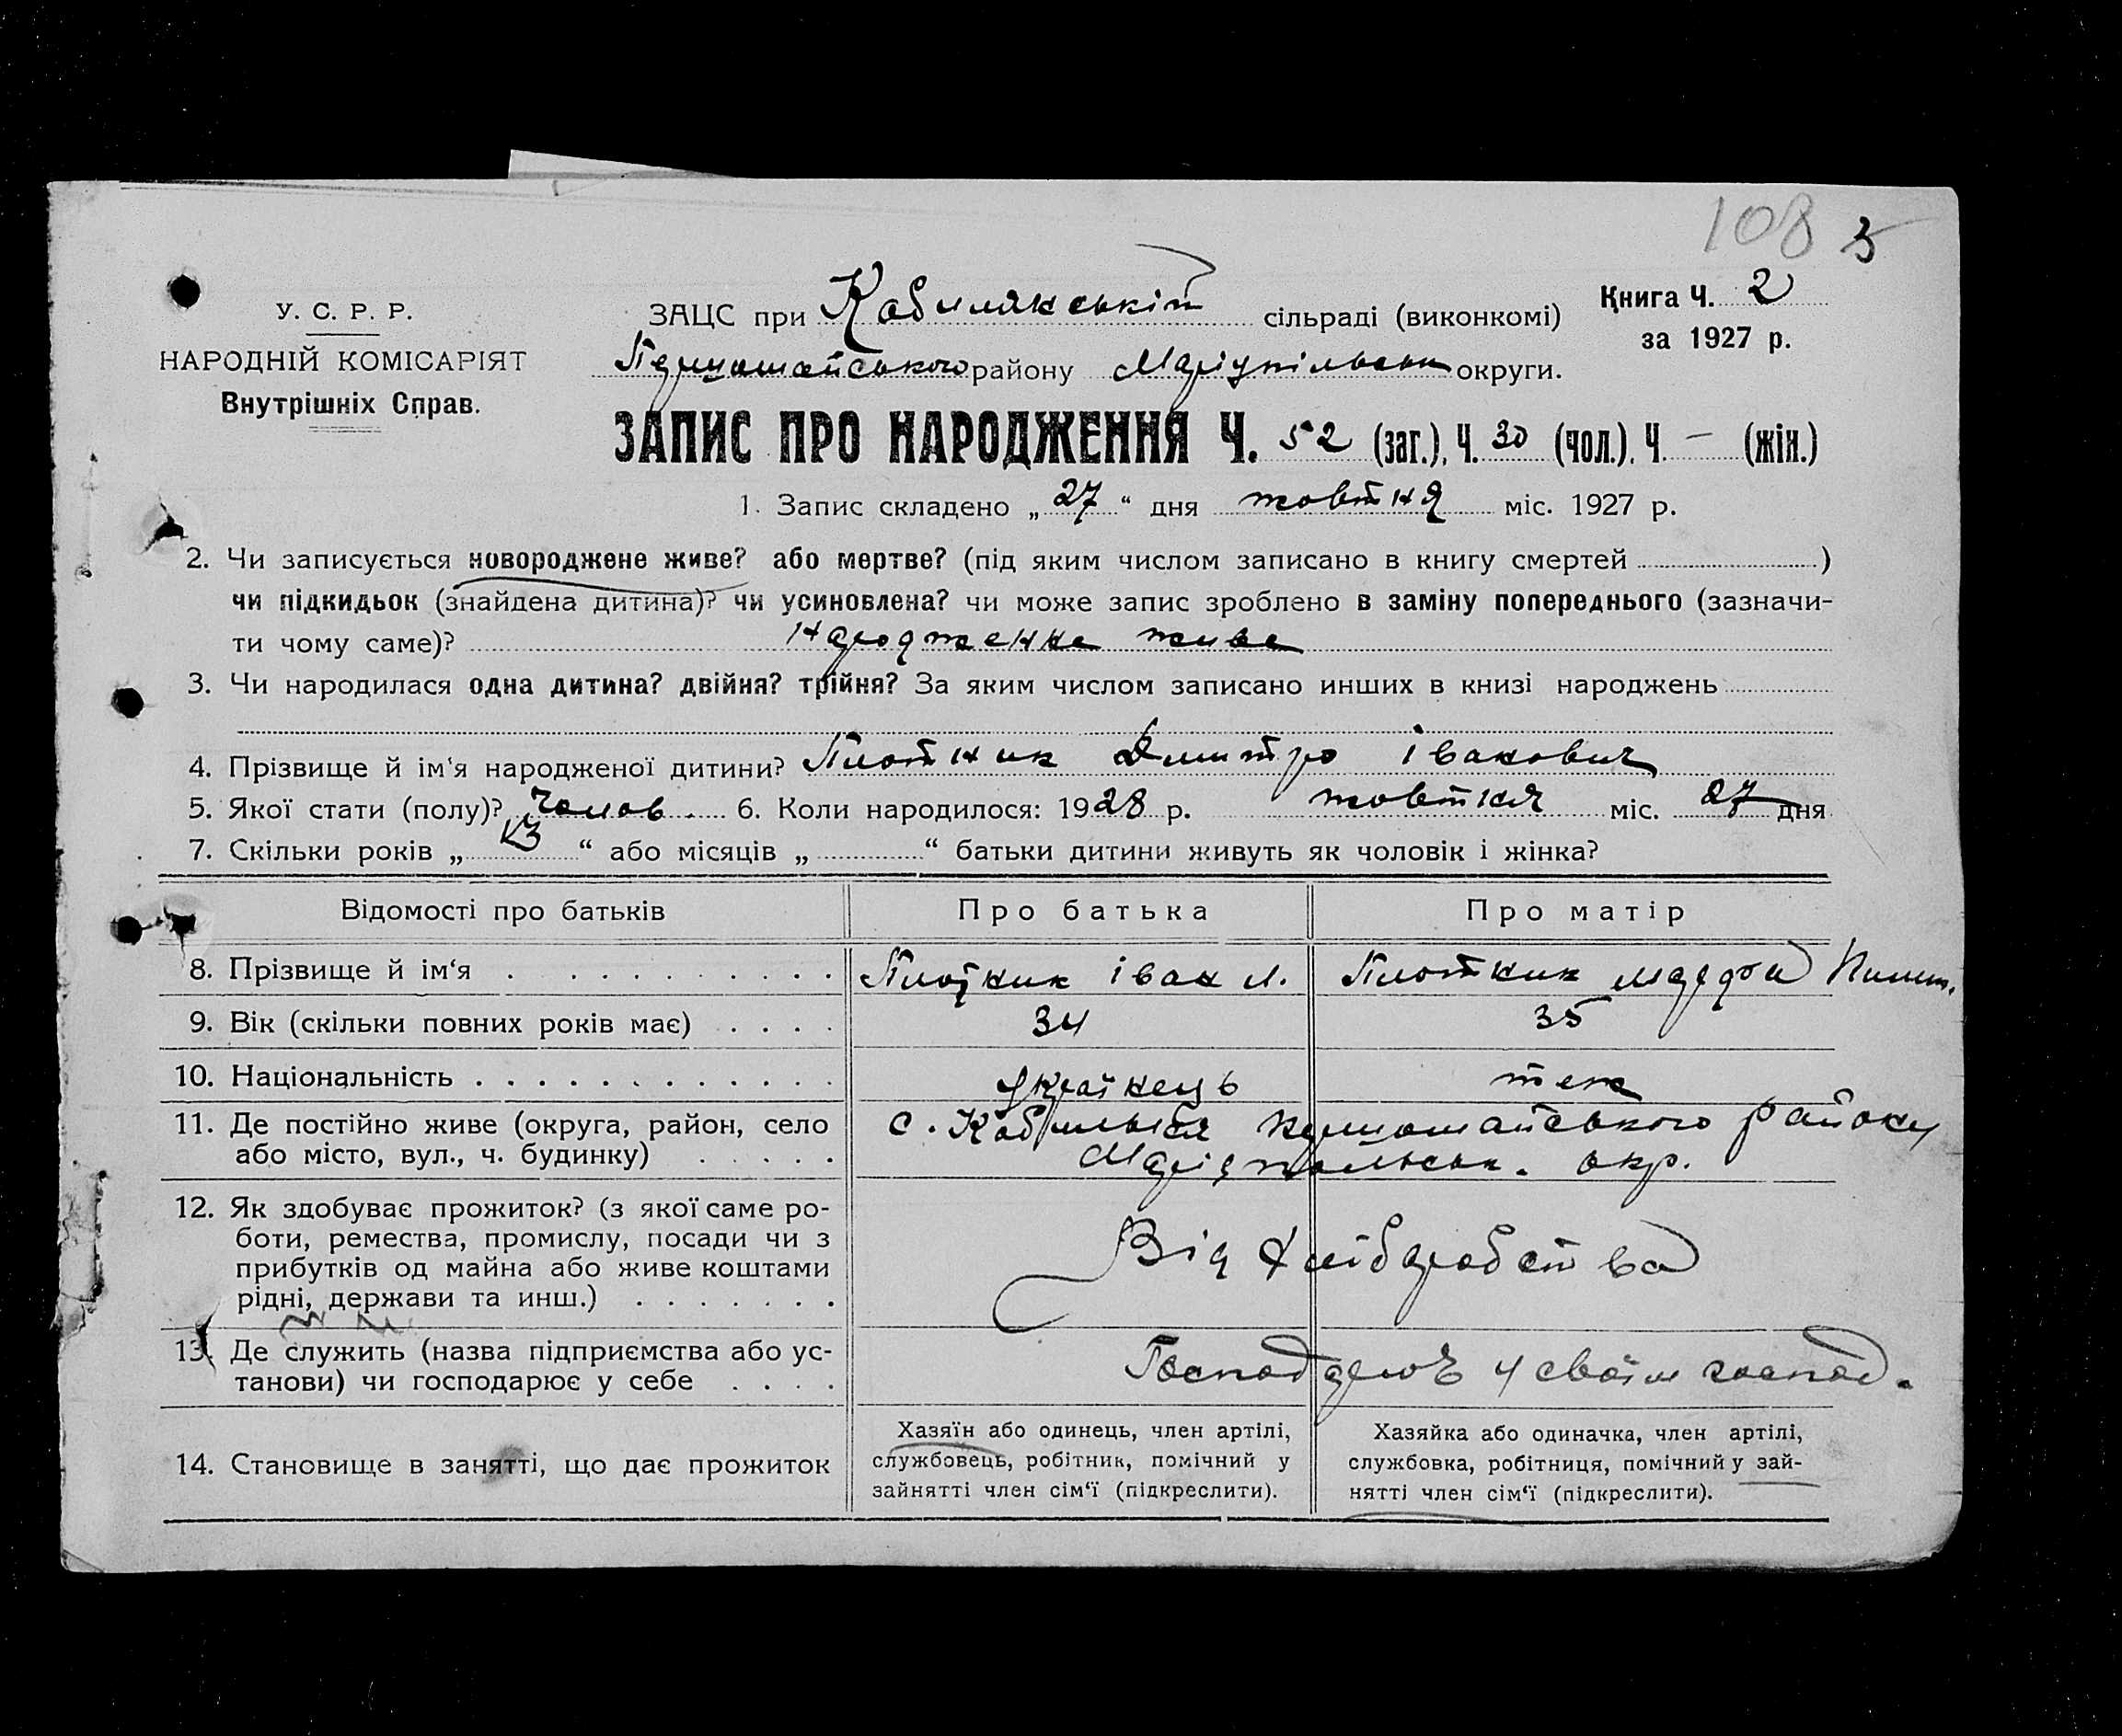 108 3
У. С. Р. Р.
НАРОДНІЙ КОМІСАРІЯТ
Внутрішніх Справ.
ЗАЦС при сільраді (виконкомі)
Книга Ч. 2
за 1927 р.
району округи.
ЗАПИС ПРО НАРОДЖЕННЯ Ч. 52 (заг.), Ч. 30 (чол.), Ч. — (жін.)
1. Запис складено „27“ дня жовтня міс. 1927 р.
2. Чи записується новороджене живе? або мертве? (під яким числом записано в книгу смертей )
чи підкидьок (знайдена дитина)? чи усиновлена? чи може запис зроблено в заміну попереднього (зазначи-
ти чому саме)? живе
3. Чи народилася одна дитина? двійня? трійня? За яким числом записано инших в книзі народжень
4. Прізвище й ім‘я народженої дитини? Плотник Дмитро Іванович
5. Якої стати (полу)? Чолов. 6. Коли народилося: 1928 р. жовтня міс. 27 дня
7. Скільки років „ “ або місяців „ “ батьки дитини живуть як чоловік і жінка?
Відомості про батьків Про батька Про матір
8. Прізвище й ім‘я Плотник Іван Плотник
9. Вік (скільки повних років має) 34 35
10. Національність українець теж
11. Де постійно живе (округа, район, село
або місто, вул., ч. будинку)
с. району
окр.
12. Як здобуває прожиток? (з якої саме ро-
боти, ремества, промислу, посади чи з
прибутків од майна або живе коштами
рідні, держави та инш.)
Від хліборобства
13. Де служить (назва підприємства або ус-
танови) чи господарює у себе
у своїм господ.
14. Становище в занятті, що дає прожиток
Хазяїн або одинець, член артілі,
службовець, робітник, помічний у
зайнятті член сім‘ї (підкреслити).
Хазяйка або одиначка, член артілі,
службовка, робітниця, помічний у зай-
нятті член сім‘ї (підкреслити).